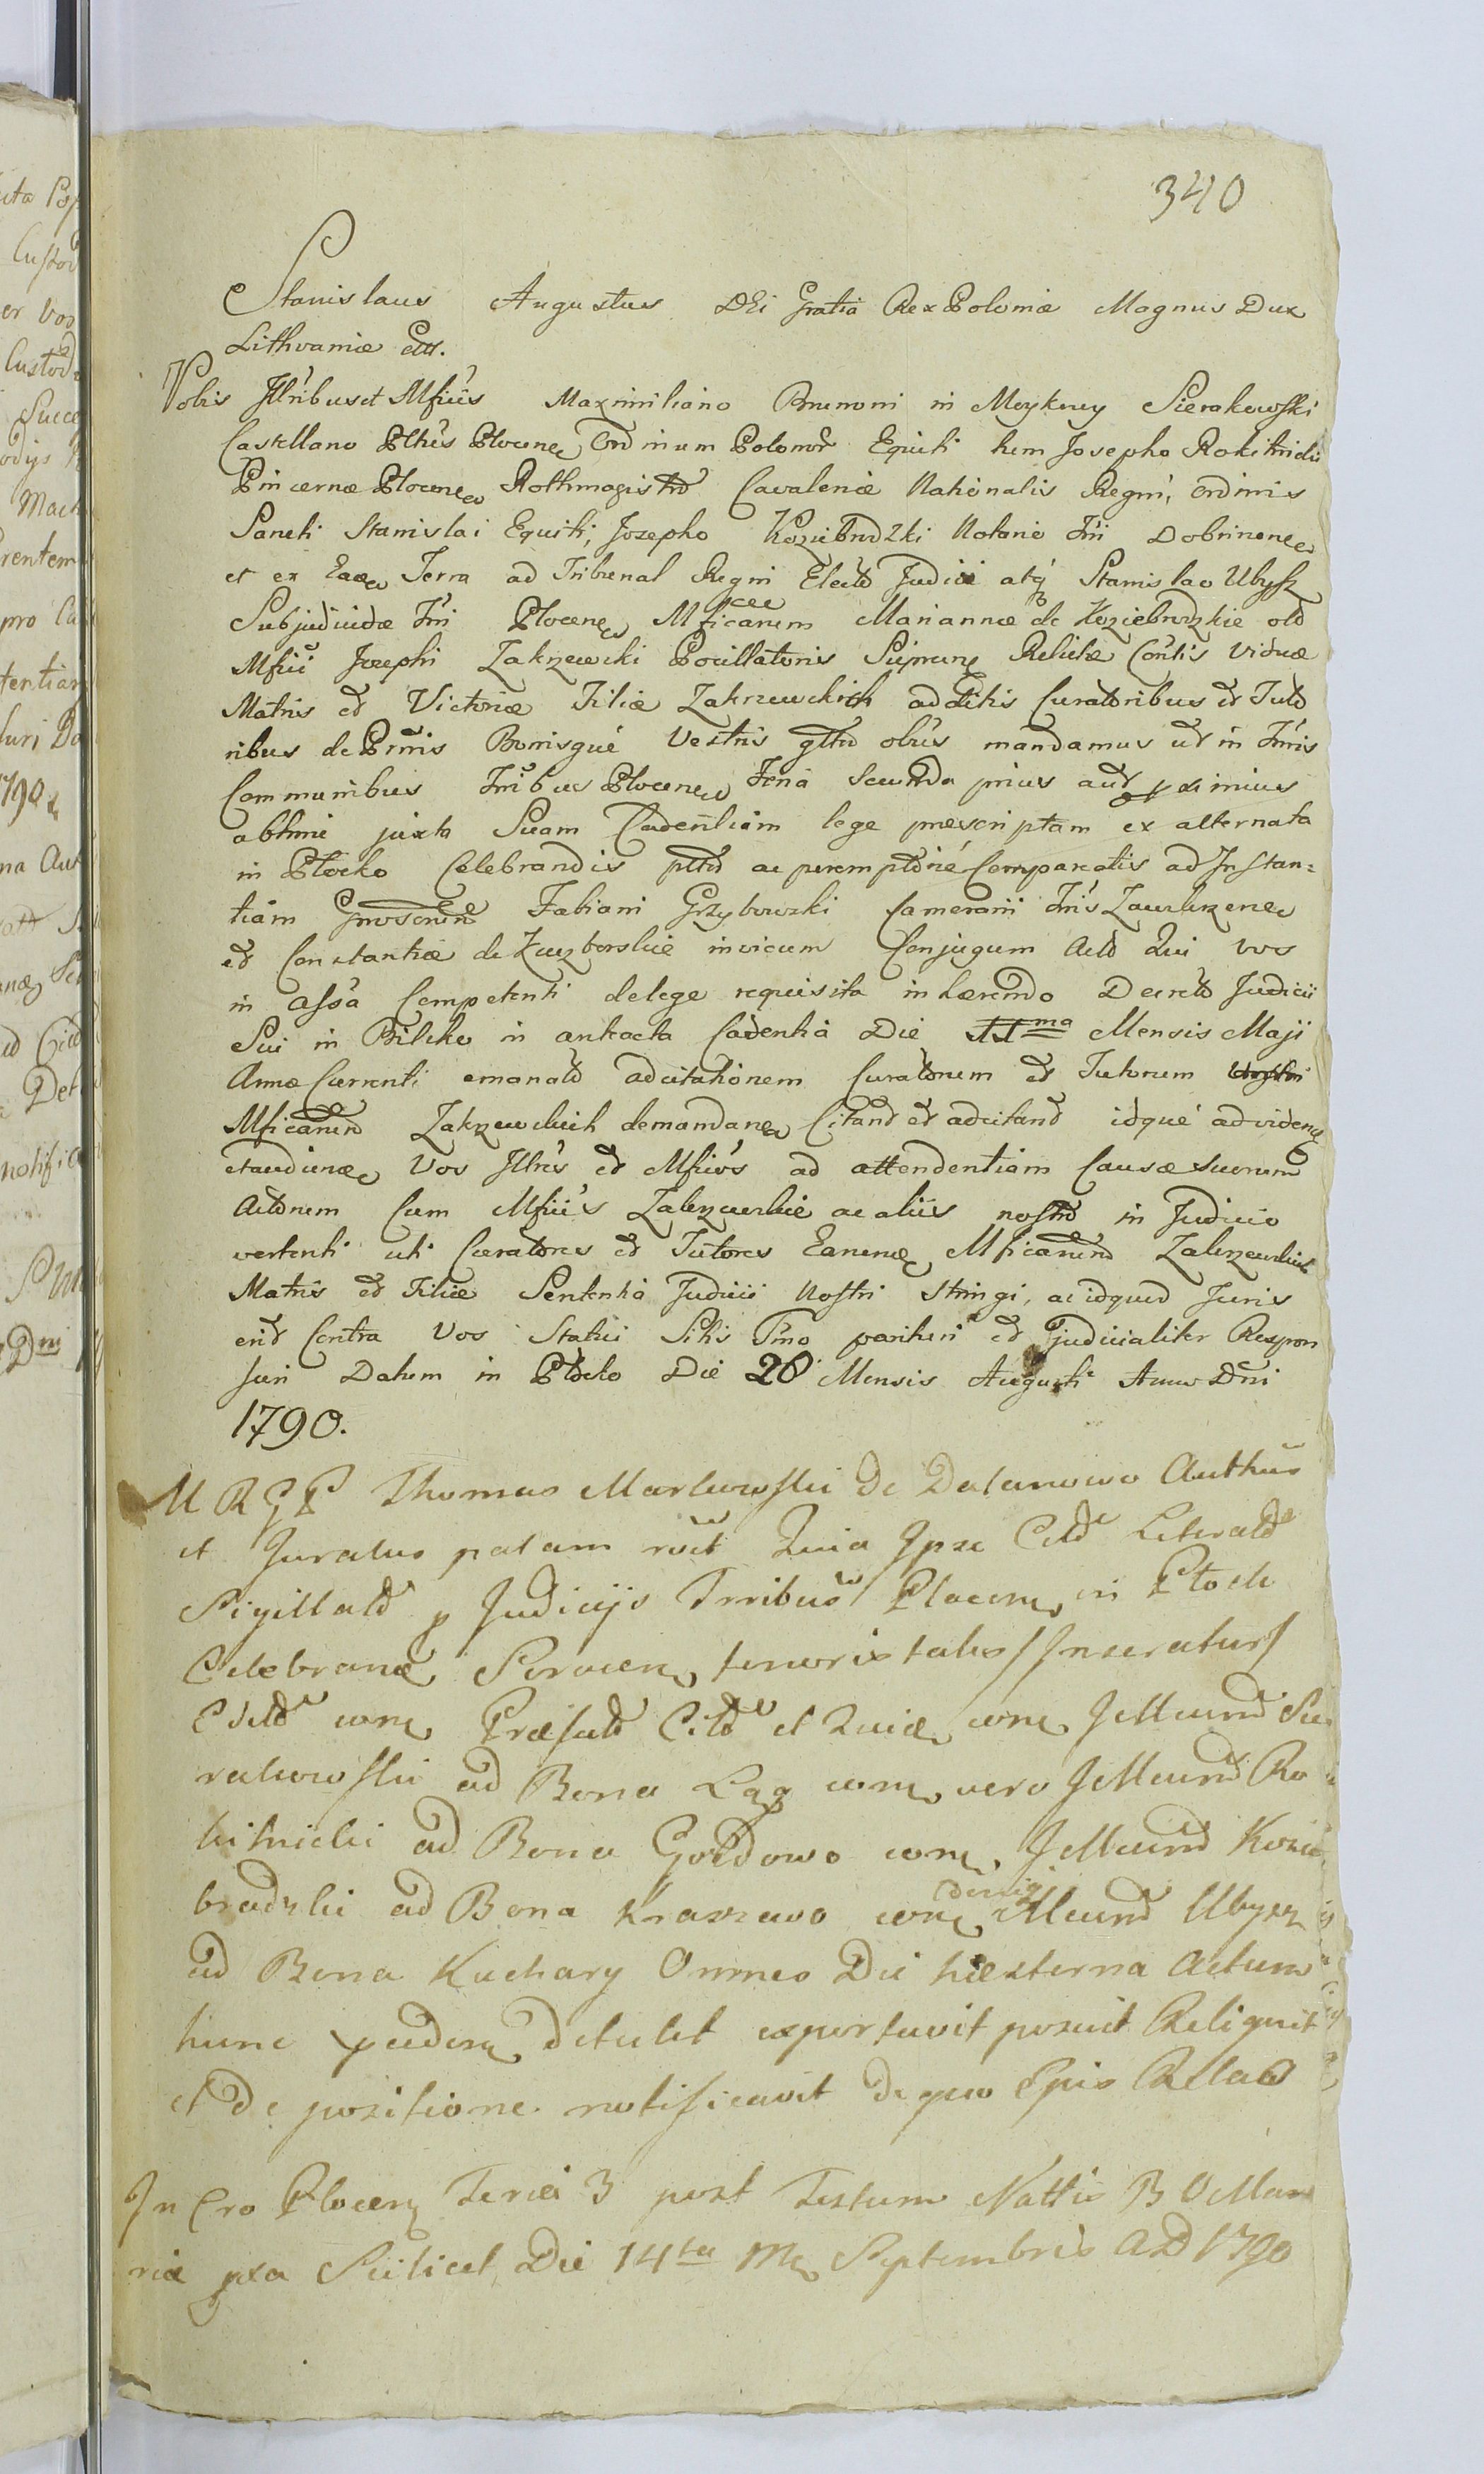 340
Stanislaus Augustus DEi Gratia Rex Poloniæ Magnus Dux
Lithvaniæ ett.
Vobis Illribus et Mficis Maximiliano Brunoni in Moykowy Sierakowski
Castellano Plocens Ordinum Polonor Equiti tum Josepho Rokitnicki
Pincernæ Plocens Rothmagistro Cavaleriæ Nationalis Regni, ordinis
Sancti Stanislai Equiti, Josepho Koziebrodzki Notario Tri Dobrinens
et ex Eadem Terra ad Tribunal Regni Electo Judici atq Stanislao Ubysz
Subjudicidæ Tri Plocens Mficarum Mariannæ de Koziebrodzkie olo
Mfici Josephi Zakrzewski Pocillatoris Sieprcens Relictæ Contis viduæ
Matris et Victoriæ Filiæ Zakrzewskich additis Curatoribus et Tuto
ribus de Prnis Bonisque Vestris gltr obus mandamus ut in Trnis
Communibus Tribus Plocens Feria Secunda prius aut proximius
abhinc juxta Suam Cadentiam lege præscriptam ex alternata
in Plocko Celebrandis pltr ac peremptorie Compareatis ad Instan=
tiam Gnosorum Fabiani Grzybowski Camerarii Tris Zawkrzens
et Constantiæ de Zuzborskie invicem Conjugum Acto Qui vos
in assa Competenti de lege requisita inhærendo Decreto Judicii
Sui in Bilsko in antacta Cadentia Die 11ma Mensis Maji
Anno Currenti emanato adcitationem Curatorum et Tutorum
Mficarum Zakrzewskich demandan Citand et adcitand idque ad videns
etaudiens Vos Illres et Mficos ad attendentiam Causæ suorum
Actorum Cum Mficis Zakrzewskie ac aliis nostro in Judicio
vertenti uti Curatores et Tutores Earund Mficarum Zakrzewskich
Matris et Filiæ Sententia Judicii Nostri stringi, ac idquid Juris
erit Contra Vos Statui Sitis Tmo parituri et judicialiter Respon
suri Datum in Plocko Die 28 Mensis Augusti Anno Dni
1790.
M R G P Thomas Markowski de Dalanowo Authus
et Juratus palam rcit Quia Ipse Cito Literato
Sigillato p Judicijs Trribus Plocens in Plock
Celebrand Servien tenoris talis /Inseratur/
Edito unu Præfato Cito et Quidem unu JMund Sie
rakowski ad Bona Leg unu vero JMund Ro
kitnicki ad Bona Gozdowo unu JMund Kozie
brodzki ad Bona Kraszewo unu Mund Ubysz
ad Bona Kuchary Omnes Die hesterna Actum
hunc præceden detulit exportavit posuit Reliquit
et de positione notificavit de quo Epis Relao
In Cro Plocen Feria 3 post Festum Nattis B V Mar
riæ pxa Scilicet Die 14ta Ms Septembris AD 1790